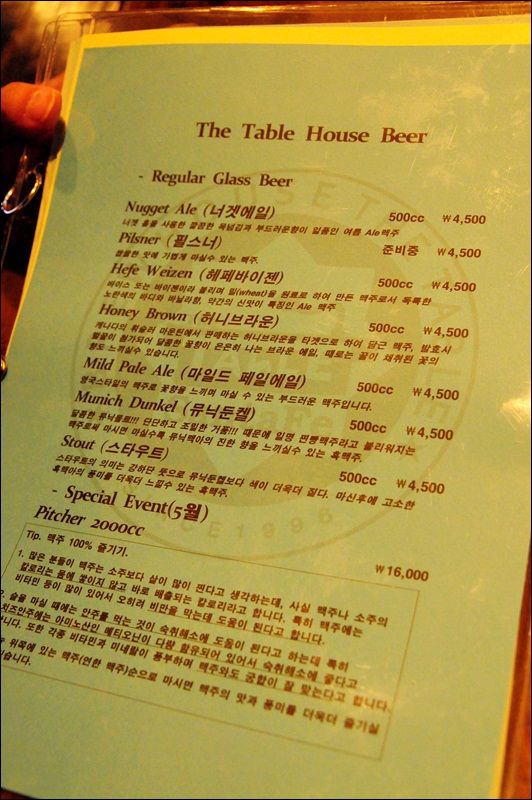 The Table House Beer
- Regular Glass Beer
Nugget Ale (너겟에일) 500cc ₩4,500
너겟 홉을 사용한 깔끔한 목넘김과 부드러운향이 일품인 여름 Ale맥주
Pilsner (필스너) 준비중 ₩4,500
쌉쌀한 맛에 가볍게 마실수 있는 맥주.
Hefe Weizen (헤페바이젠) 500cc ₩4,500
바이스 또는 바이젠이라 불리며 밀(wheat)을 원료로 하여 만든 맥주로서 독특한
노란색의 바디와 바닐라향, 약간의 신맛이 특징인 Ale 맥주
Honey Brown (허니브라운) 500cc ₩4,500
캐나다의 휘슬러 마운틴에서 판매하는 허니브라운을 타겟으로 하여 담근 맥주, 발효시
벌꿀이 첨가되어 달콤한 꿀향이 은은하게 나는 브라운 에일, 때로는 꿀이 채취된 꽃의
향도 느끼실수 있습니다.
Mild Pale Ale (마일드 페일에일) 500cc ₩4,500
영국스타일의 맥주로 꽃향을 느끼며 마실 수 있는 부드러운 맥주입니다.
Munich Dunkel (뮤닉둔켈) 500cc ₩4,500
달콤한 뮤닉몰트!!! 단단하고 조밀한 거품!!! 때문에 일명 면빵맥주라고 불리워지는
맥주로써 마시면 마실수록 뮤닉맥아의 진한 향을 느끼실수 있는 흑맥주.
Stout (스타우트) 500cc ₩4,500
스타우트의 의미는 강하단 뜻으로 뮤닉둔켈보다 색이 더욱더 짙다. 마신후에 고소한
흑맥아의 풍미를 더욱더 느낄수 있는 흑맥주.
- Special Event(5월)
Pitcher 2000cc ₩16,000
Tip. 맥주 100% 즐기기.
1. 많은 분들이 맥주는 소주보다 살이 많이 찐다고 생각하는데, 사실 맥주나 소주의
칼로리는 몸에 쌓이지 않고 바로 배출되는 칼로리라고 합니다. 특히 맥주에는
비타민 등이 많이 있어서 오히려 비만을 막는데 도움이 된다고 합니다.
술을 마실 때에는 안주를 먹는 것이 숙취해소에 도움이 된다고 하는데 특히
치즈안주에는 아미노산인 메티오닌이 다량 함유되어 있어서 숙취해소에 좋다고
니다. 또한 각종 비타민과 미네랄이 풍부하며 맥주와도 궁합이 잘 맞는다고 합니다.
위쪽에 있는 맥주(연한 맥주)순으로 마시면 맥주의 맛과 풍미를 더욱더 즐기실
있습니다.
SINCE 1996